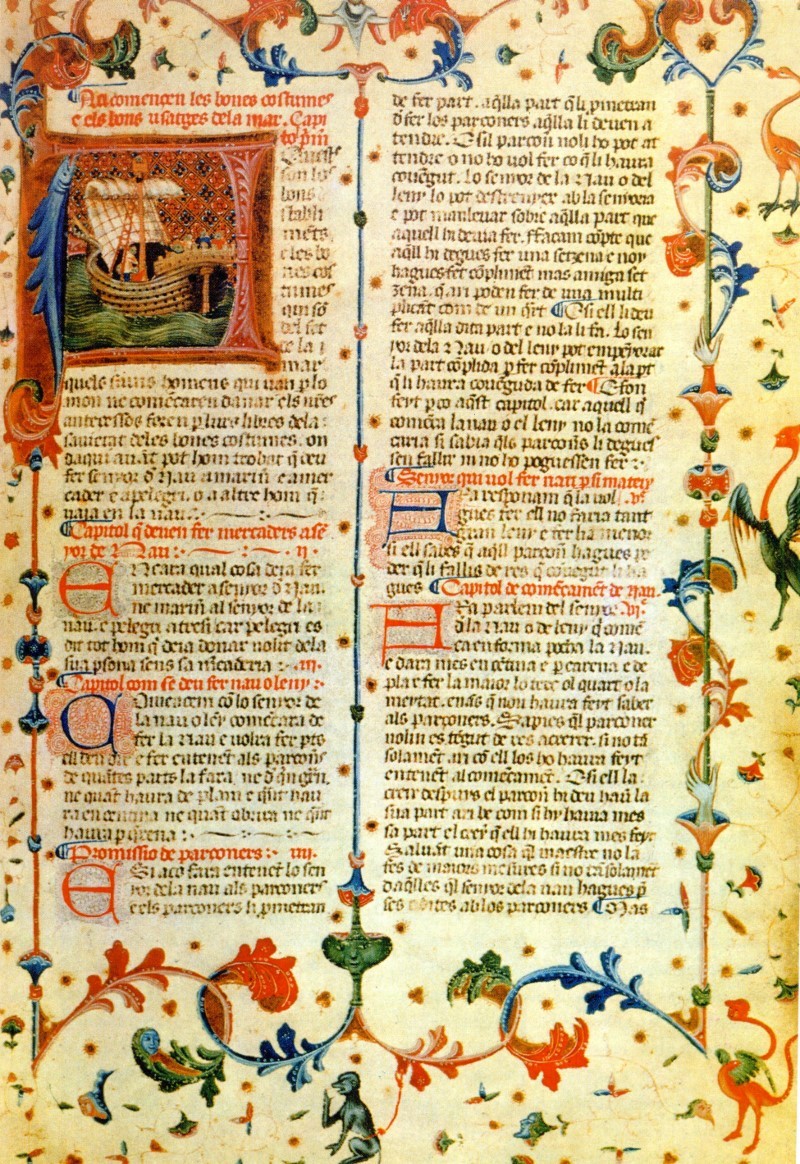 Aci comencen les bones costumes
e els bons usatges dela mar. Capi
tol prim
Aquests
son los
bons
stabli
mets
e les bo
nes cos
tumes
qui só
del fet
de la
mar
quels savis homens qui van plo
mon ne comēcarē danar als nrēs
antecessós feren p livres libres dela
savietat deles bones costumes. on
daqui avāt pot hom trobar q̄ deu
fer senyor d nau a marin e a mer
cader e a pelegri. o a altre hom q̄
vaia en la nau
Capitol q̄ deuen fer mercaders a sē
yor de Nau .ij.
Encara qual cosa deia fer
mercader a senyor d nau.
ne marin̄ al senyor de la
nau. e pelegri atresi car pelegri es
dit tot hom q̄ deia donar nolit dela
sua p̄sona sens sa mercaderia .iij.
Capitol com se deu fer nau o leny
Comēcem cō lo senyor de
la nau o leny comēcara de
fer la nau e volra fer pts
ell deu dir e fer entenēt als parconēs
de quātes parts la fara. ne d quīgrā.
ne quāt haura de plan e quīt hau
ra en centina ne quāt obrira ne quīt
haura p q̄rena
Promissio de parconers .iiij.
E si aco fara entenēt lo sen
yor dela nau als parconers
e els parconers li pmetran
de fer part. aq̄lla part q̄ li pmetran
d fer los parconers aq̄lla li deuen a
tendre. E si l parcon̄ no li ho pot at
tendre o no ho vol fer co q̄ li haura
covēgut. lo senyor de la nau o del
leny lo pot destrenyer ab la senyoria
e pot manlevar sobre aq̄lla part que
aquell hi devia fer. Facam cōpte que
aq̄ll hi degues fer una setzena e noy
hagues fet cōplimēt mas amiga set
zena. q̄ ari poden fer de una multi
plicāt com de un q̄rt E si ell li deu
fer aq̄lla dita part e no la li fa. lo sen
yor dela Nau o del leny pot empenyorar
la part cōplida p fer cōplimēt a la pt
q̄ li haura covēguda de fer E fon
feyt p co aq̄st capitol. car aquell q̄
comēca la nau o el leny no la comē
caria si sabia q̄ls parconēs li degues
sen fallir ni no ho poguessen fer
Senyor qui vol fer nau p si mateix
Ara responam q̄ la vol
gues fer ell no faria tant
gran leny e fer ha menor
si ell sabes q̄ aq̄ll parcon̄ hagues po
der q̄ li fallis de res q̄ covēgut li ha
gues Capitol de comēcamēt de nau.
Ara parlem del senyor .vj.
d la nau o de leny q̄ comē
ca en forma pocha la nau.
e dara mes en cētina e p carena e de
pla e fer la maior lo terc ol quart o la
meytat. e nas q̄ non haura feyt saber
als parconers. Sapies q̄l parconer
nol in es tēgut de res acorrer. si no tā
solamēt ari cō ell los ho haura feyt
entenēt al comēcamēt. E si ell la
creix despuys el parcon̄ hi deu hav̄ la
sua part axi be com si hy hauia mes
sa part el creix q̄ ell hi haura mes feyt
Saluāt una cosa q̄l maestre no la
fes de maiors mesures si no tā solamēt
d aq̄lles q̄l senyor dela nau hagues p
ses ab los parconers Mas